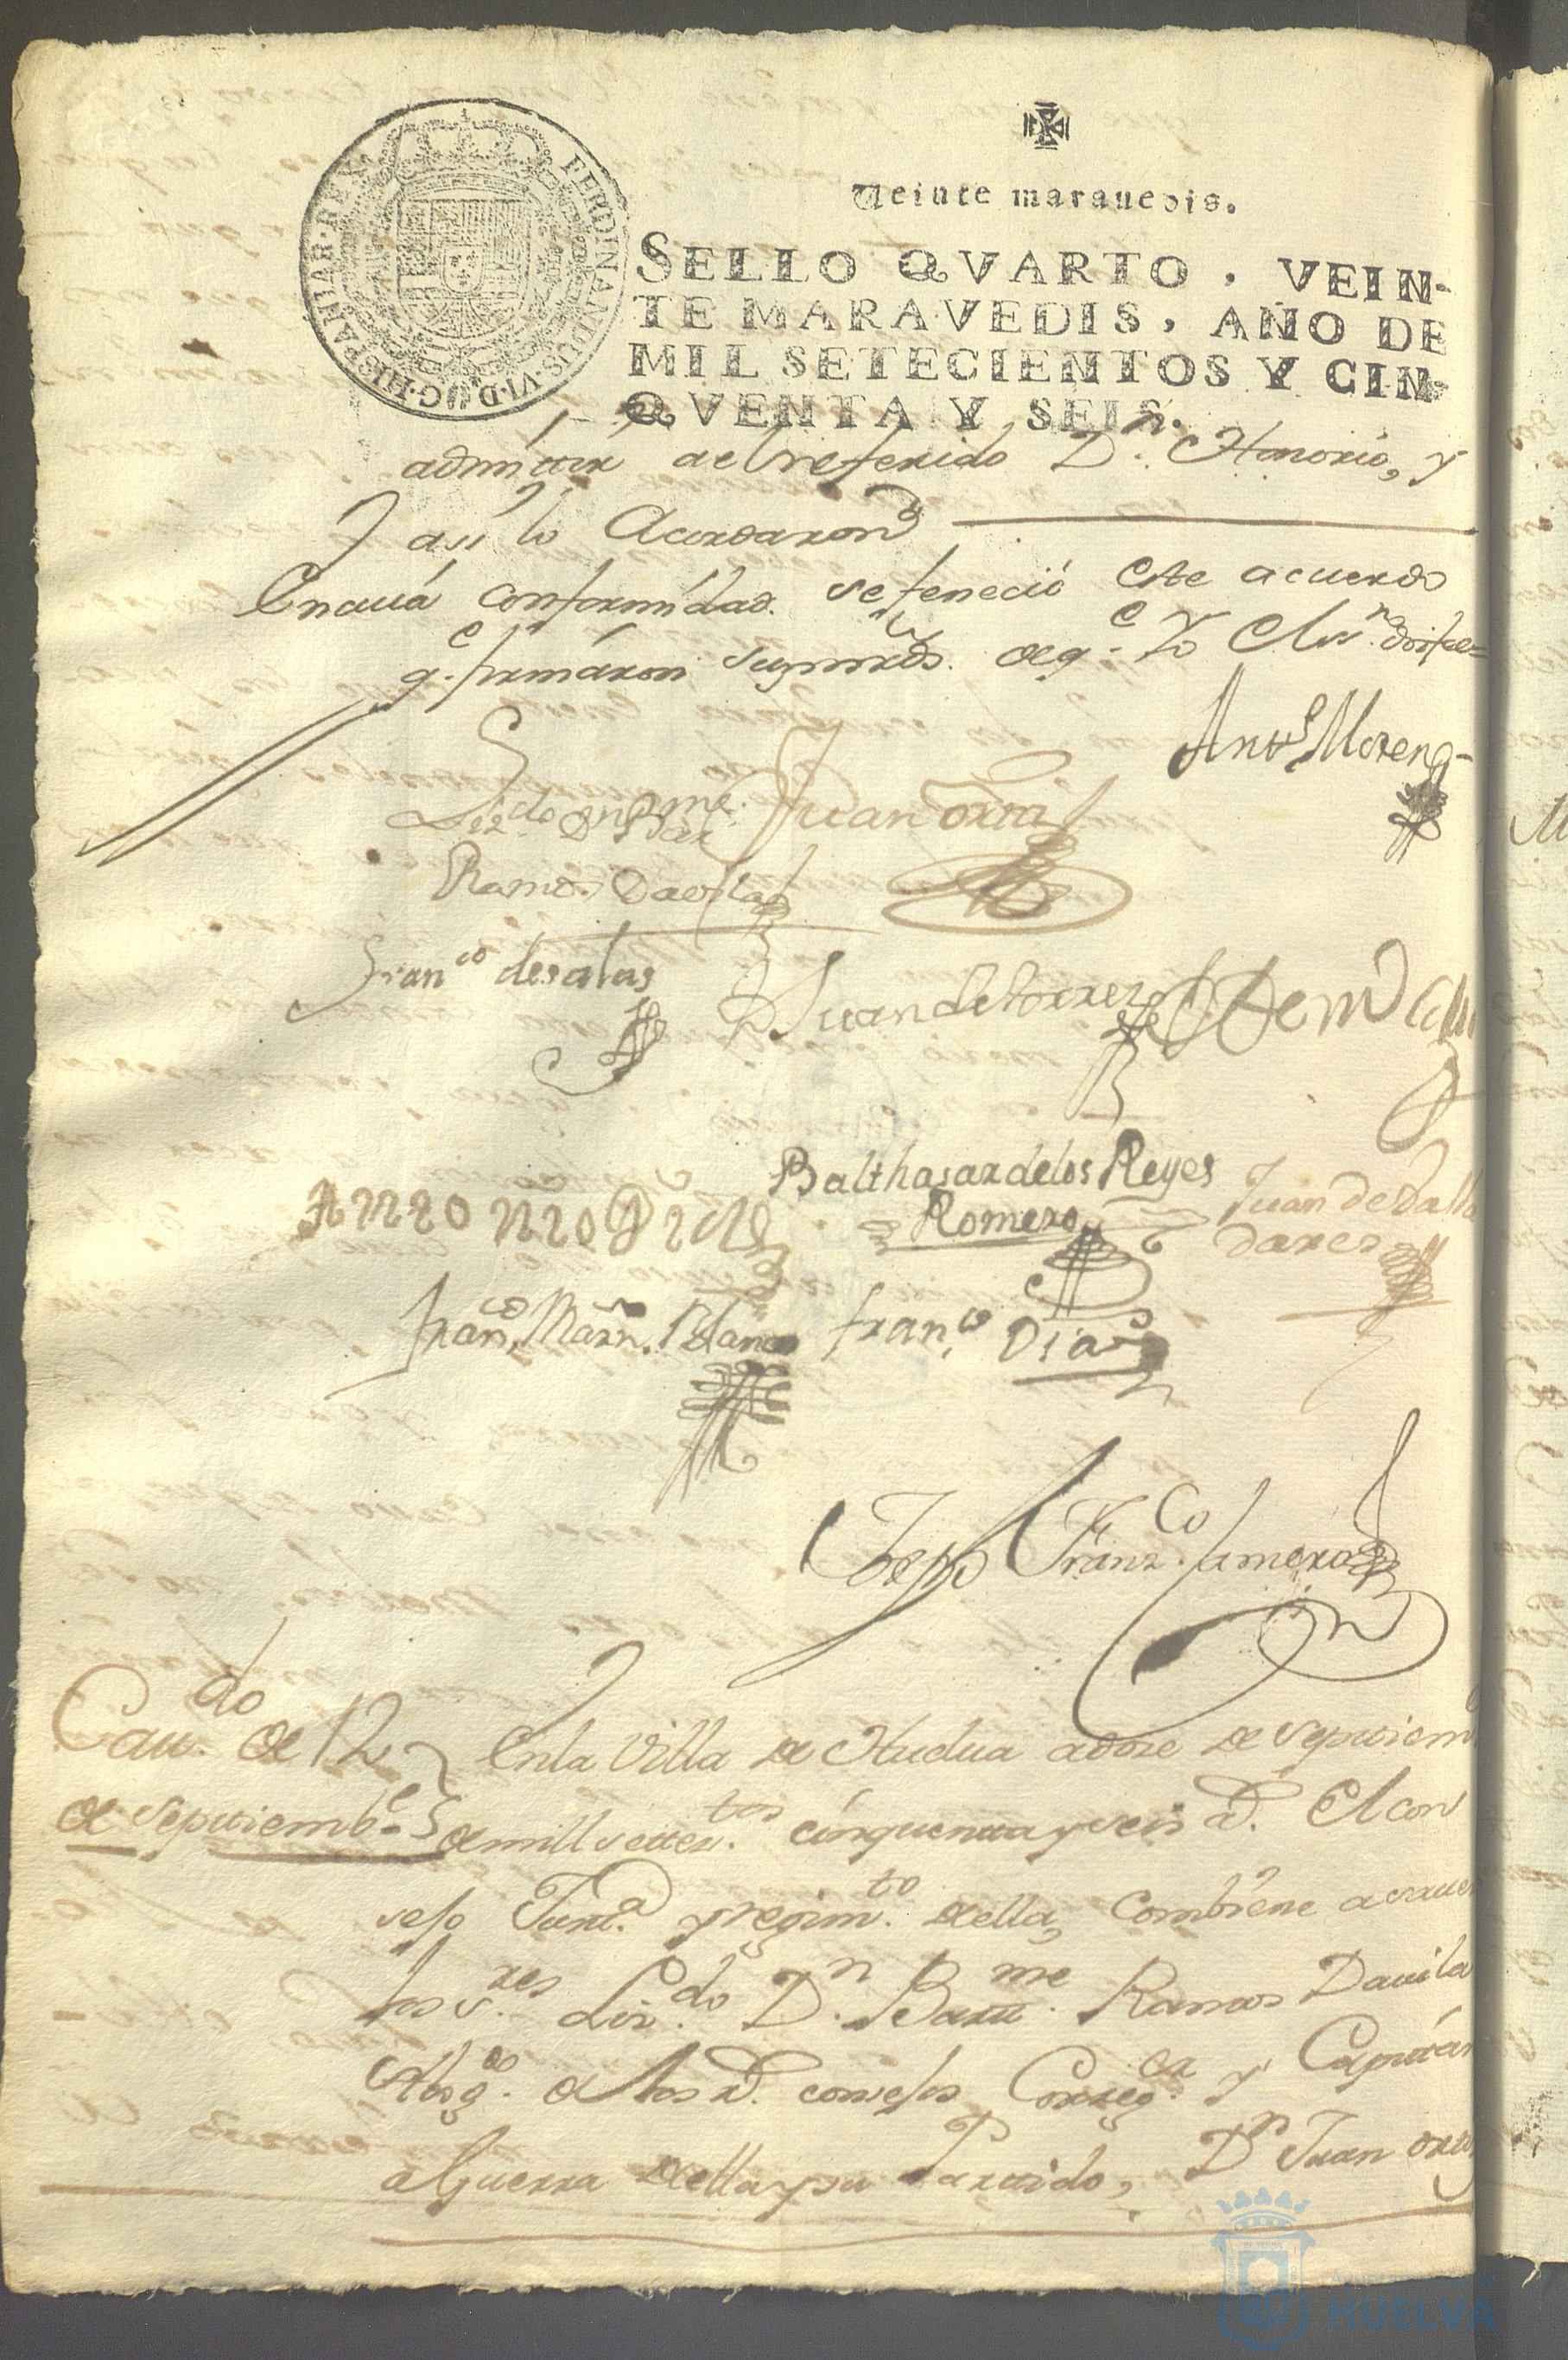 FERDINANDUS·VI·D·G·HISPANIAR·REX
Veinte marauedis.
SELLO QVARTO, VEIN-
TE MARAVEDIS, AÑO DE
MIL SETECIENTOS Y CIN-
QVENTA Y SEIS.
admitir al referido Dn. Honorio, y
asi lo Acordaron
En cuia conformidad se feneció este acuerdo
qe. firmáron sus mrds. de qe. Yo el Essno. doi fee=
Anto Moreno
Lizdo Dn Barme.
Ramos Davila
Juan Ortiz
Franco de salas
D Juan de torres
Balthasar de los Reyes
Romero
Juan de Valla
dares
Anto nio Diaz
Franco. Marn. Blanco
franco. Dias
Joseph Franzco. Camero
Cavdo. de 12
de Septiembe.
En la Villa de Huelua a doze de Septiem
de mill seteztos. cinquenta y seis as. El con
sejo Justa. y regimto. de ella, Combiene a sauer
los Sres. Lizdo. Dn. Barme. Ramos Davila
Abogdo. de los Rs. consejos Corregor. y Capitán
a Guerra de ella y su Partido, Dn Juan Orti
HUELVA